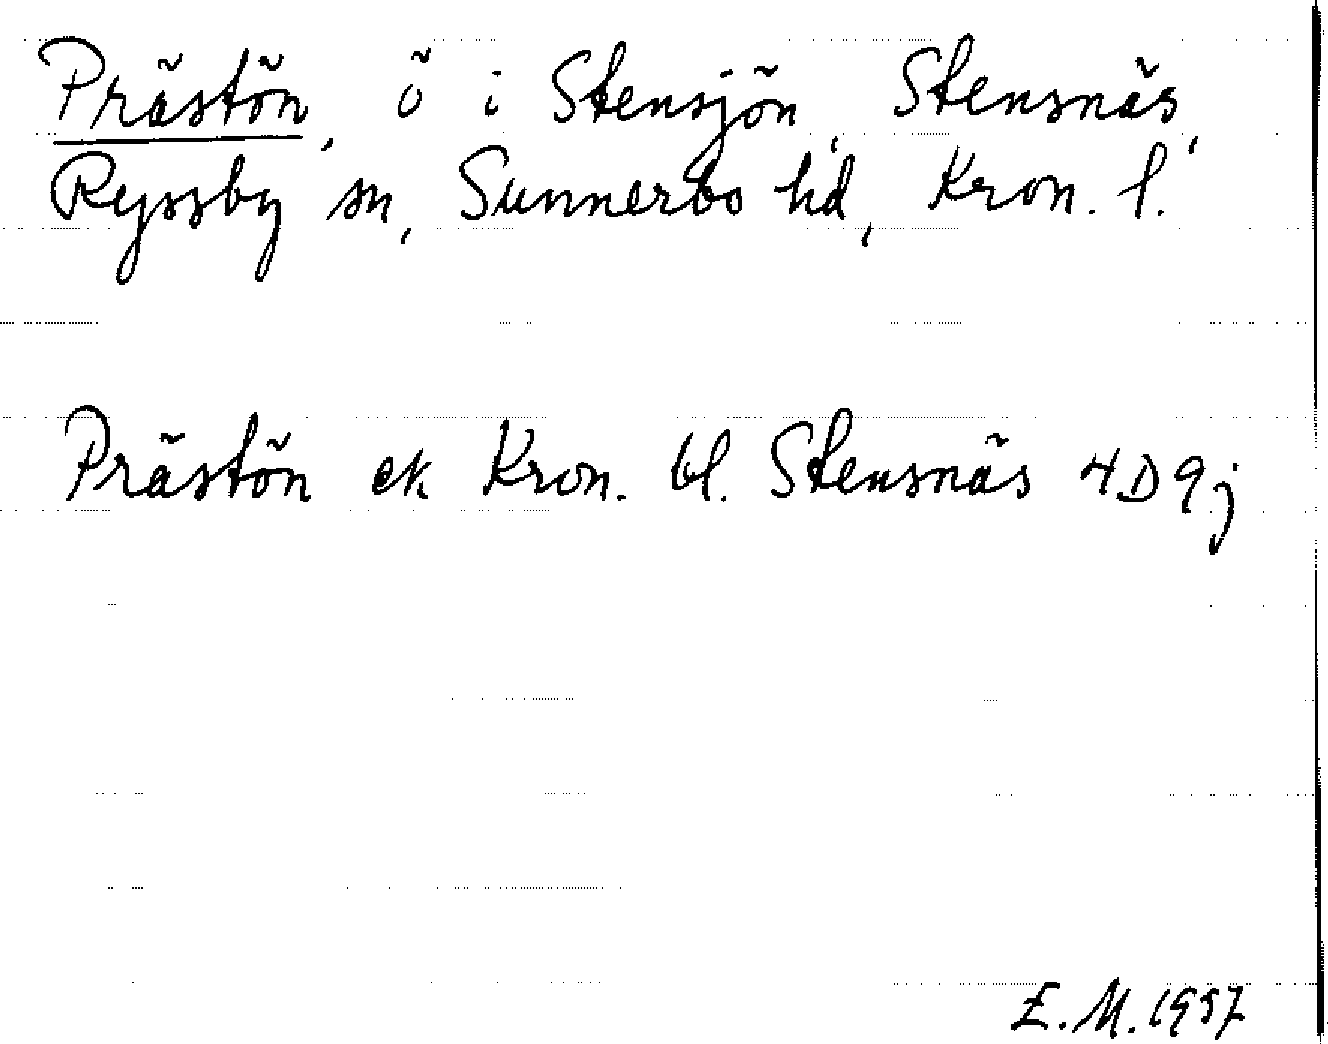 Prästön, ö i Stensjön, Stensnäs,
Ryssby sn, Sunnerbo hd, Kron. l.
Prästön ek Kron. bl. Stensnäs 4D9j
E.M. 1957